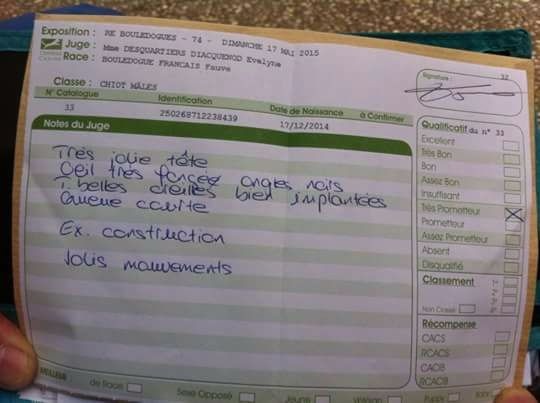 Exposition : RE BOULEDOGUES - 74 - DIMANCHE 17 MAI 2015
Juge : Mme DESQUARTIERS DIACQUENOD Evelyne
Race : BOULEDOGUE FRANCAIS Fauve
Signature : 32
Classe : CHIOT MÂLES
N° Catalogue Identification Date de Naissance à Confirmer
33 250268712238439 17/12/2014
Notes du Juge
Très jolie tête
Oeil très foncée ongles noirs
T. belles oreilles bien implantées
Queue courte
Ex. construction
Jolis mouvements
Qualificatif du n° 33
Excellent
Très Bon
Bon
Assez Bon
Insuffisant
Très Prometteur X
Prometteur
Assez Prometteur
Absent
Disqualifié
Classement
Non Classé
Récompense
CACS
RCACS
CACIB
RCACIB
MEILLEUR de Race Sexe Opposé Jeune Vétéran Puppy Baby